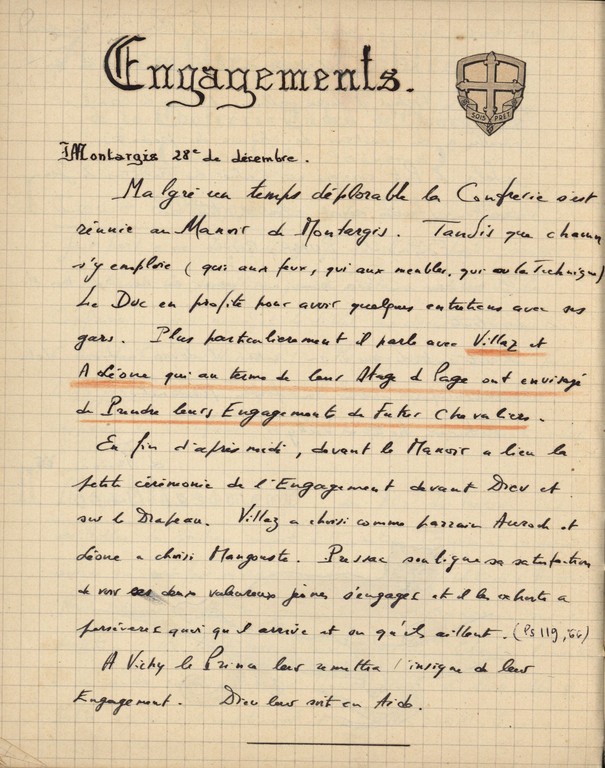 Engagements.
SOIS PRET
Montargis 28e de décembre.
Malgré un temps déplorable la Confrerie s'est
réunie au Manoir de Montargis. Tandis que chacun
s'y emploie (qui aux feux, qui aux meubles, qui à la Technique)
Le Duc en profite pour avoir quelques entretiens avec ses
gars. Plus particulièrement il parle avec Villaz et
A Léone qui au terme de leur Stage de Page ont envisagé
de Prendre leurs Engagements de Futur Chevaliers.
En fin d'après midi, devant le Manoir a lieu la
petite cérémonie de l'Engagement devant Dieu et
sur le Drapeau. Villaz a choisi comme parrain Auroch et
Léone a choisi Mangouste. Pressac souligne sa satisfaction
de voir ses deux valeureux jeunes s'engager et il les exhorte a
persévérer quoi qu'il arrive et où qu'ils aillent. (Ps 119,
A Vichy le Prince leur remettra l'insigne de leur
Engagement. Dieu leur soit en Aide.